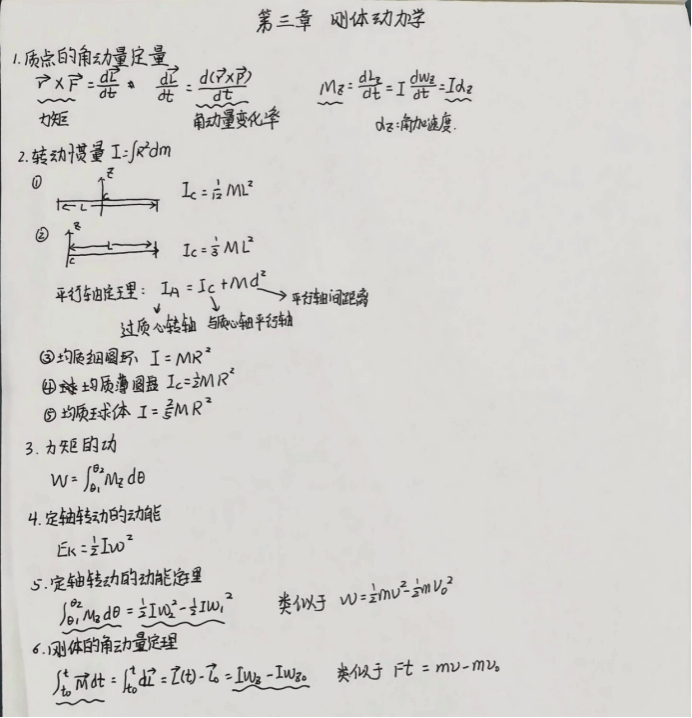 第三章 刚体动力学
1.质点的角动量定量
r⃗×F⃗ = dL⃗/dt . dL⃗/dt = d(r⃗×P⃗)/dt Mz = dLz/dt = I dωz/dt = Iαz
力矩 角动量变化率 αz:角加速度.
2.转动惯量 I=∫R²dm
① z c L Ic = 1/12 ML²
② z c L Ic = 1/3 ML²
平行轴定理: IA = Ic + Md² → 平行轴间距离
过质心转轴 与质心轴平行轴
③均质细圆环 I = MR²
④均质薄圆盘 Ic = 1/2 MR²
⑤均质球体 I = 2/5 MR²
3. 力矩的功
W = ∫θ₁^θ₂ Mz dθ
4. 定轴转动的动能
Ek = 1/2 Iω²
5. 定轴转动的动能定理
∫θ₁^θ₂ Mz dθ = 1/2 Iω₂² - 1/2 Iω₁² 类似于 W = 1/2 mv² - 1/2 mv₀²
6. 刚体的角动量定理
∫t₀^t M⃗ dt = ∫t₀^t dL⃗ = L⃗(t) - L⃗₀ = Iωz - Iωz₀ 类似于 Ft = mv - mv₀